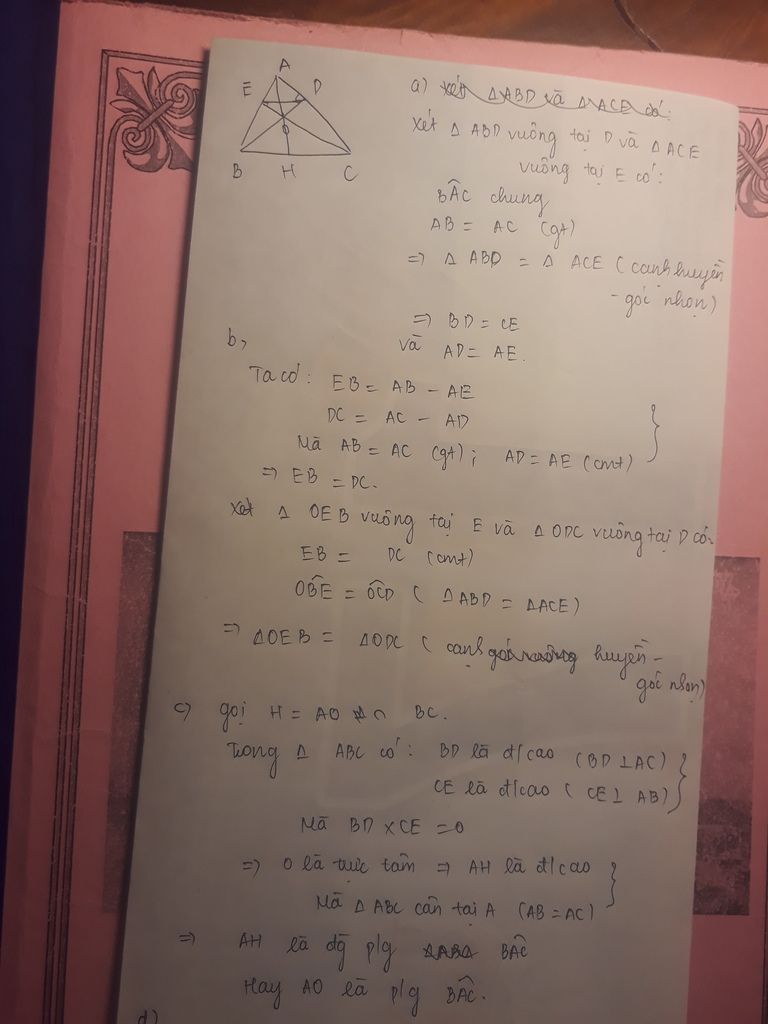 A
E
D
O
B
H
C
a) xét Δ ABD và Δ ACE có:
Xét Δ ABD vuông tại D và Δ ACE
vuông tại E có:
BÂC chung
AB = AC (gt)
=> Δ ABD = Δ ACE (cạnh huyền
- góc nhọn)
=> BD = CE
và AD = AE.
b,
Ta có: EB = AB - AE
DC = AC - AD
Mà AB = AC (gt); AD = AE (cmt)
=> EB = DC.
Xét Δ OEB vuông tại E và Δ ODC vuông tại D có:
EB = DC (cmt)
OB̂E = OĈD (ΔABD = ΔACE)
=> ΔOEB = ΔODC (cạnh góc vuông huyền -
góc nhọn)
c) gọi H = AO ∩ BC.
Trong Δ ABC có: BD là đ/cao (BD ⊥ AC)
CE là đ/cao (CE ⊥ AB)
Mà BD × CE = O
=> O là trực tâm => AH là đ/cao
Mà Δ ABC cân tại A (AB = AC)
=> AH là đg p/g BÂC
Hay AO là p/g BÂC.
d)